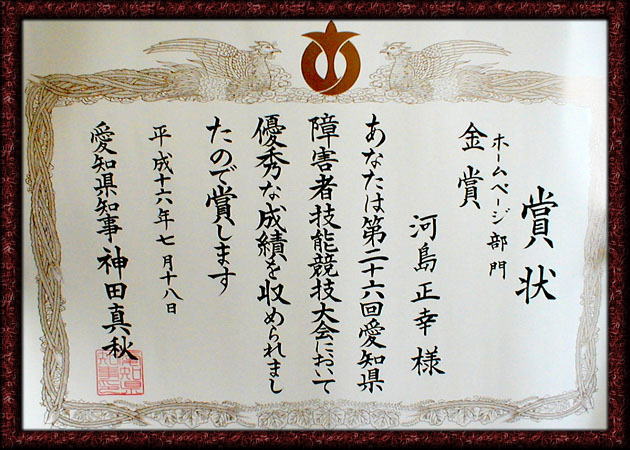 賞状
ホームページ部門
金賞
河島正幸様
あなたは第二十六回愛知県
障害者技能競技大会において
優秀な成績を収められまし
たので賞します
平成十六年七月十八日
愛知県知事 神田真秋